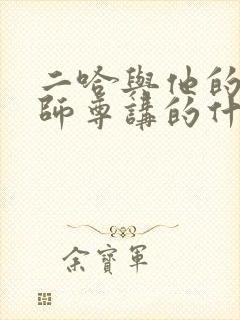 二哈與他的
師尊講的什
余寶軍